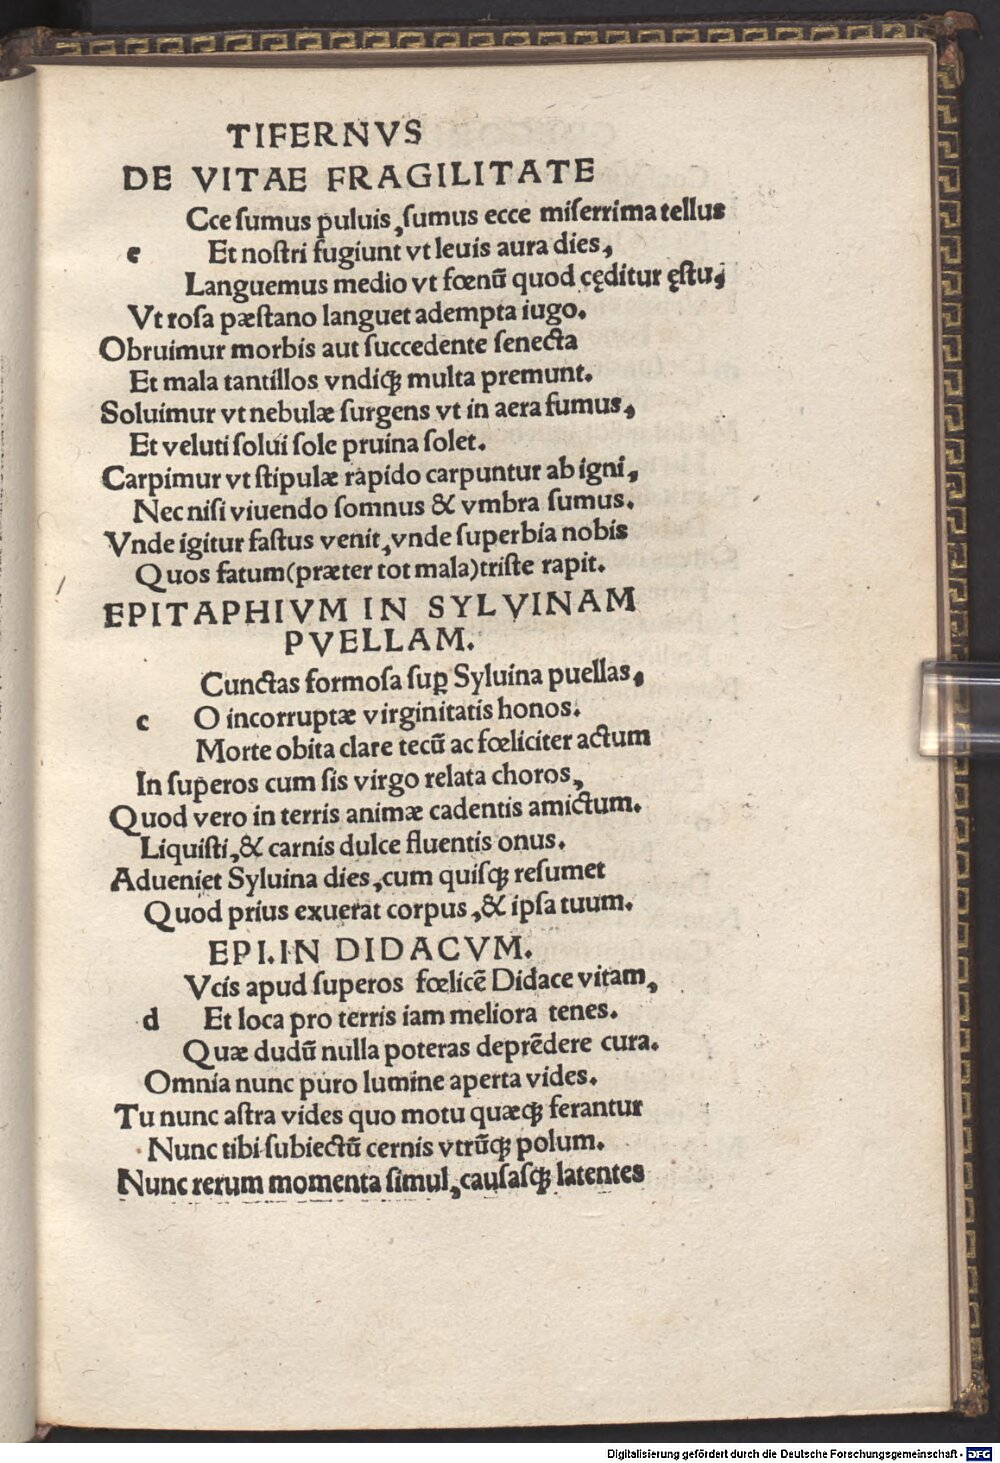 TIFERNVS
DE VITAE FRAGILITATE
Cce sumus puluis, sumus ecce miserrima tellus
e Et nostri fugiunt vt leuis aura dies,
Languemus medio vt fœnū quod cęditur ęstu,
Vt rosa pæstano languet adempta iugo.
Obruimur morbis aut succedente senecta
Et mala tantillos vndiqꝫ multa premunt.
Soluimur vt nebulæ surgens vt in aera fumus,
Et veluti solui sole pruina solet.
Carpimur vt stipulæ rapido carpuntur ab igni,
Nec nisi viuendo somnus & vmbra sumus.
Vnde igitur fastus venit, vnde superbia nobis
Quos fatum (præter tot mala) triste rapit.
EPITAPHIVM IN SYLVINAM
PVELLAM.
Cunctas formosa suꝑ Syluina puellas,
c O incorruptæ virginitatis honos.
Morte obita clare tecū ac fœliciter actum
In superos cum sis virgo relata choros,
Quod vero in terris animæ cadentis amictum.
Liquisti, & carnis dulce fluentis onus.
Adueniet Syluina dies, cum quisqꝫ resumet
Quod prius exuerat corpus, & ipsa tuum.
EPI.IN DIDACVM.
Vcis apud superos fœlicē Didace vitam,
d Et loca pro terris iam meliora tenes.
Quæ dudū nulla poteras deprēdere cura.
Omnia nunc puro lumine aperta vides.
Tu nunc astra vides quo motu quæqꝫ ferantur
Nunc tibi subiectū cernis vtrūqꝫ polum.
Nunc rerum momenta simul, causasqꝫ latentes
Digitalisierung gefördert durch die Deutsche Forschungsgemeinschaft - DFG